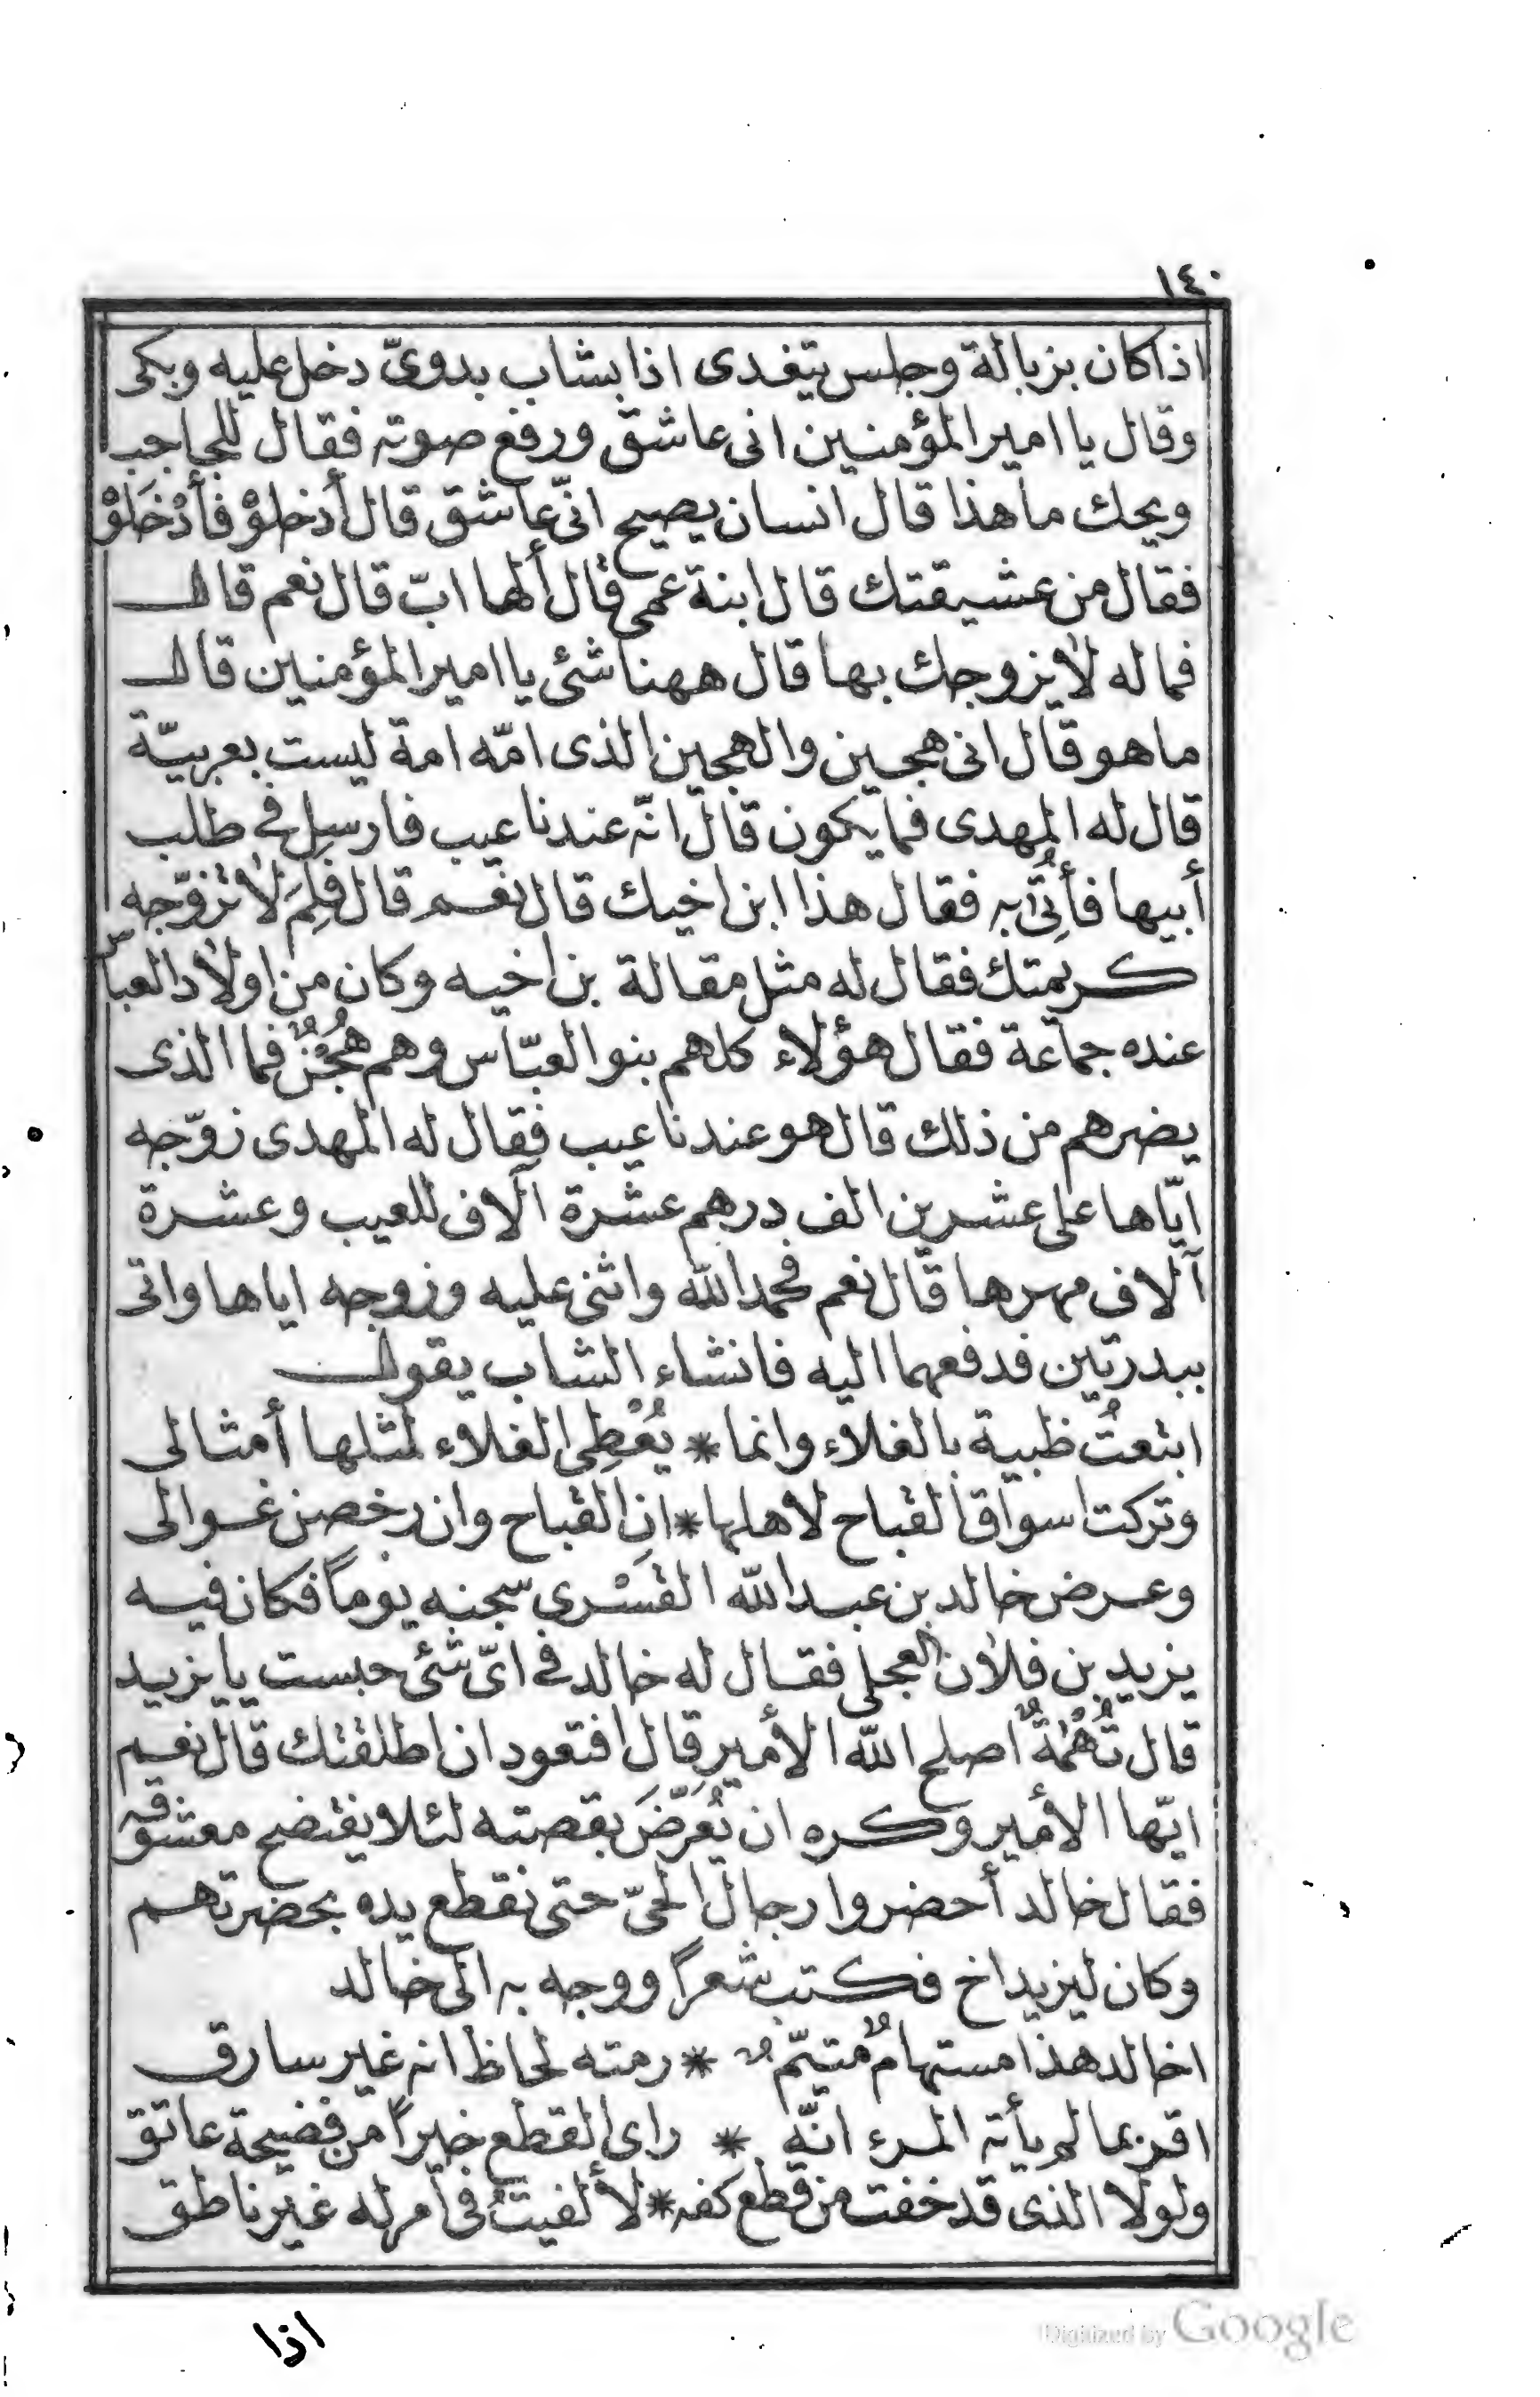 ١٤٠
اذاكان بزبالة وجلس يتغدى اذا بشاب بدوىّ دخل عليه وبكى
وقال يا امير المؤمنين انى عاشق ورفع صوته فقال للحاجب
ويحك ما هذا قال انسان يصيح انّى عاشق قال أدخلوْ فأَدْخَلَوْ
فقال من عشيقتك قال ابنة عمى قال ألها ابّ قال نعم قال
فما له لا يزوجك بها قال ههنا شئ يا امير المؤمنين قال
ما هو قال انى هجين والهجين الذى امّه امة ليست بعربيّة
قال له المهدى فما يكون قال انّه عندنا عيب فارسل فى طلب
أبيها فأُتِىَ به فقال هذا ابن اخيك قال نعم قال فلِمَ لا تزوّجه
كريمتك فقال له مثل مقالة بن اخيه وكان من اولاد العباس
عنده جماعة فقال هؤلاء كلهم بنو العبّاس وهم هُجُنٌ فما الذى
يضرهم من ذلك قال هو عندنا عيب فقال له المهدى زوّجه
ايّاها على عشرين الف درهم عشرة آلاف للعيب وعشرة
آلاف مهرها قال نعم فحمد الله واثنى عليه وزوجه اياها واتى
ببدرتين فدفعهما اليه فانشاء الشاب يقول
ابتعتُ ظبية بالغلاء وانما * يُعْطِى الغلاء لمثلها أمثالى
وتركت اسواق القباح لأهلها * انّ القباح وان رخصن غوالى
وعرض خالد بن عبد الله القسْرى سجنه يوماً فكان فيه
يزيد بن فلان العجلى فقال له خالد فى اىّ شئ حبست يا يزيد
قال تُهْمَةٌ اصلح الله الأمير قال افتعود ان اطلقتك قال نعم
ايّها الأمير وكره ان يُعَرِّضَ بقصته لئلا يفتضح معشوقه
فقال خالد أحضروا رجال الحىّ حتى نقطع يده بحضرتهم
وكان ليزيد اخ فكتب شعراً ووجه به الى خالد
اخالد هذا مستهامٌ متيّمٌ * رمته لحاظ انه غير سارق
اقر بما لم يأته المرء انّه * راى القطع خيراً من فضيحة عاتق
ولولا الذى قد خفت من قطع كفه * لألفيتُ فى أمر له غير ناطق
اذا
Digitized by Google